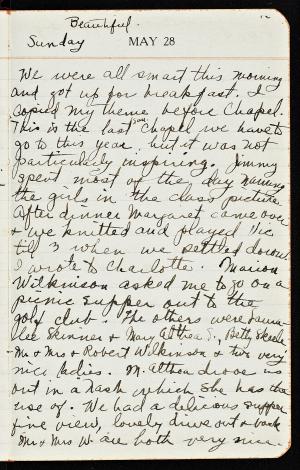 Beautiful.
Sunday MAY 28
We were all smart this morning
and got up for breakfast. I
copied my theme before Chapel.
This is the last Sun Chapel we have to
go to this year but it was not
particularly inspiring. Jimmy
spent most of the day naming
the girls in the class picture
After dinner Margaret came over
& we knitted and played Vic
til 3 when we settled down
I wrote to Charlotte. Marion
Wilkinson asked me to go on a
picnic supper out to the
golf club. The others were
Skinner & Mary Althea S., Betty Steele
Mr & Mrs & Robert Wilkinson & two very
nice ladies. M. Althea drove us
out in a Nash which she has the
use of. We had a delicious supper
fine view, lovely drive out & back
Mr & Mrs W. are both very nice.